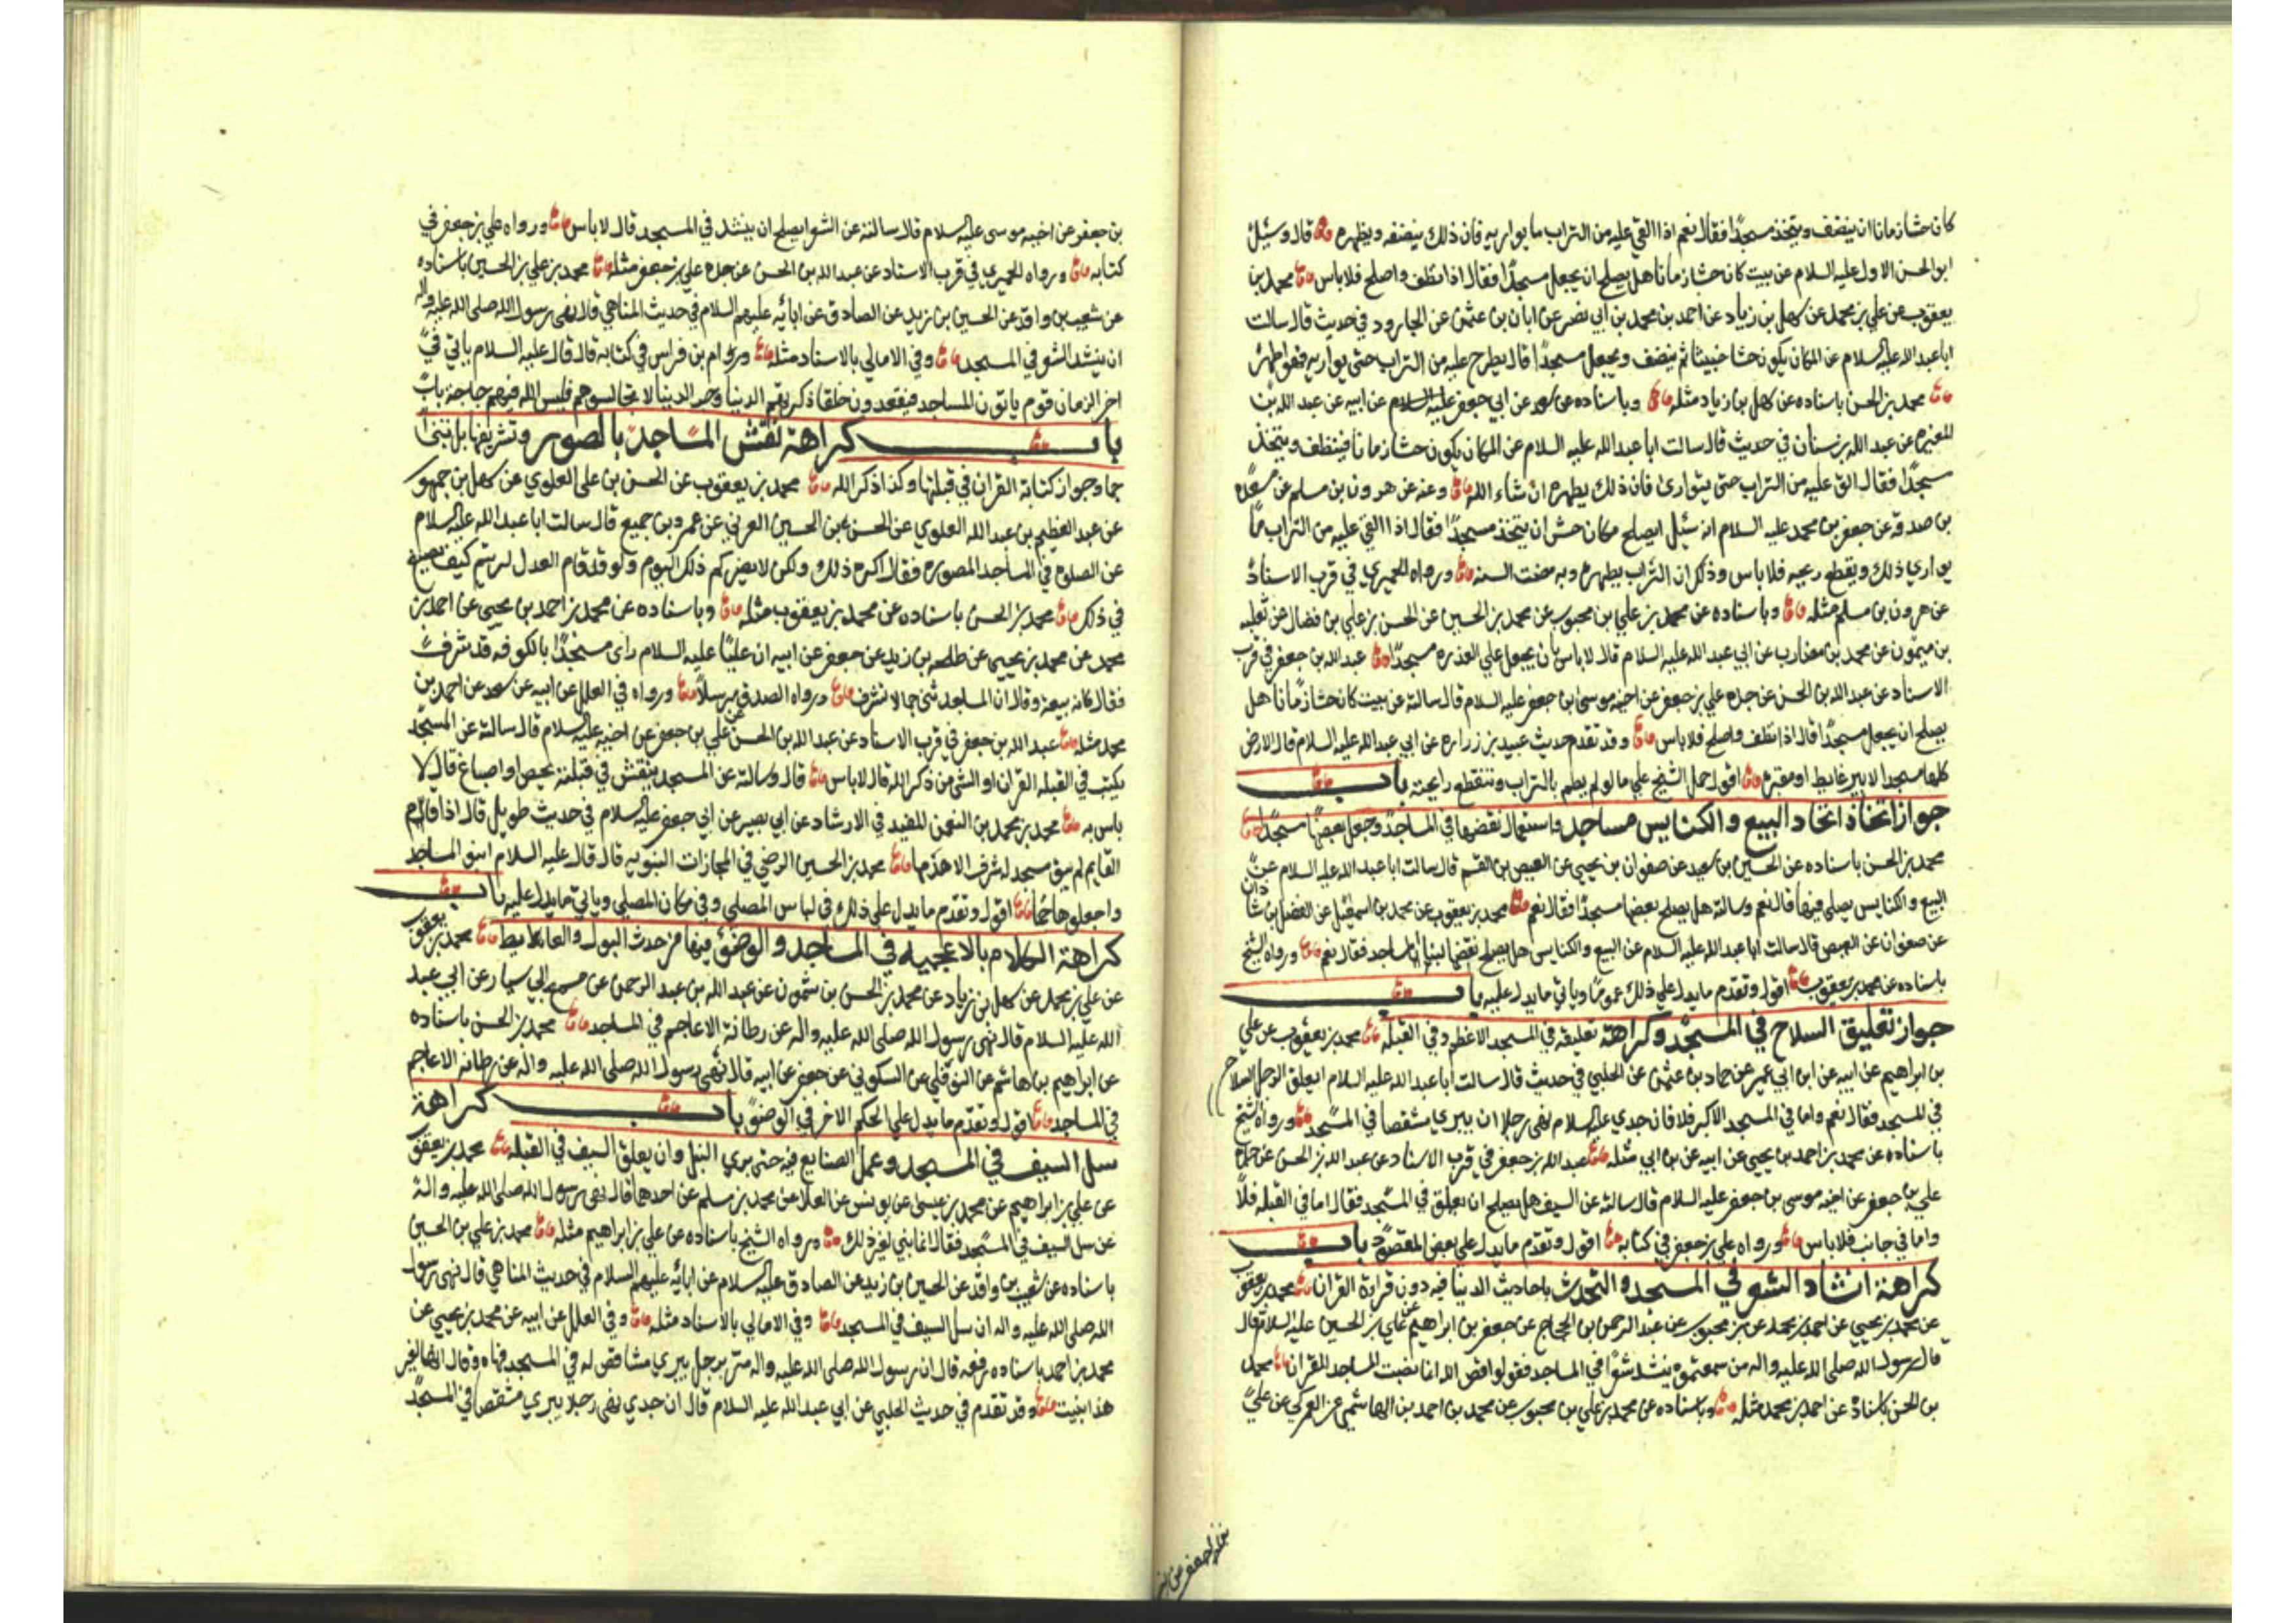 كان حشا زمانا ان ينضف ويتخذ مسجدًا فقال نعم اذا القي عليه من التراب ما يواريه فان ذلك ينضفه ويطهره قال وسئل
ابو الحسن الاول عليه السلام عن بيت كان حشا زمانا هل يصلح ان يجعل مسجدًا فقال اذا نظف واصلح فلا باس محمد بن
يعقوب عن علي بن محمد عن سهل بن زياد عن احمد بن محمد بن ابي نصر عن ابان بن عثمن عن ابي الجارود في حديث قال سالت
ابا عبد الله عليه السلام عن المكان يكون حشا خبيثا ثم ينضف ويجعل مسجدًا قال يطرح عليه من التراب حتى يواريه فهو اطهر
محمد بن الحسن باسناده عن سهل بن زياد مثله وباسناده عن سعد عن ابي جعفر عليه السلام عن ابيه عن عبد الله بن
المغيره عن عبد الله بن سنان في حديث قال سالت ابا عبد الله عليه السلام عن المكان يكون حشا زمانا فينظف ويتخذ
مسجدًا فقال الق عليه من التراب حتى يتوارى فان ذلك يطهره ان شاء الله وعنه عن هرون بن مسلم عن مسعده
بن صدقه عن جعفر بن محمد عليه السلام انه سئل ايصلح مكان حش ان يتخذ مسجدًا فقال اذا القي عليه من التراب ما
يواري ذلك ويقطع ريحه فلا باس وذلك ان التراب يطهره وبه مضت السنه ورواه الحميري في قرب الاسناد
عن هرون بن مسلم مثله وباسناده عن محمد بن علي بن محبوب عن محمد بن الحسين عن الحسن بن علي بن فضال عن ثعلبه
بن ميمون عن محمد بن مضارب عن ابي عبد الله عليه السلام قال لا باس بان يجعل علي العذره مسجدًا عبد الله بن جعفر في قرب
الاسناد عن عبد الله بن الحسن عن جده علي بن جعفر عن اخيه موسى بن جعفر عليه السلام قال سالته عن بيت كان حشا زمانا هل
يصلح ان يجعل مسجدًا قال اذا نظف واصلح فلا باس وقد تقدم حديث عبيد بن زراره عن ابي عبد الله عليه السلام قال الارض
كلها مسجد الا بير غايط او مقبره اقول حمل الشيخ علي ما لو لم يطم بالتراب وتنقطع رايحته باب
جواز اتخاذ اتخاد البيع والكنايس مساجد واستعمال نقضها في المساجد وجعل بعضها مسجدًا
محمد بن الحسن باسناده عن الحسين بن سعيد عن صفوان بن يحيى عن العيص بن القسم قال سالت ابا عبد الله عليه السلام عن
البيع والكنايس يصلى فيها قال نعم وسالته هل يصلح بعضها مسجدًا فقال نعم محمد بن يعقوب عن محمد بن اسمعيل عن الفضل بن شاذان
عن صفوان عن العيص قال سالت ابا عبد الله عليه السلام عن البيع والكنايس هل يصلح نقضها لبناء المساجد فقال نعم ورواه الشيخ
باسناده عن محمد بن يعقوب اقول وتقدم ما يدل علي ذلك عمومًا وياتي ما يدل عليه باب
جواز تعليق السلاح في المسجد وكراهة تعليقه في المسجد الاعظم وفي القبلة محمد بن يعقوب عن علي
بن ابراهيم عن ابيه عن ابن ابي عمير عن حماد بن عثمن عن الحلبي في حديث قال سالت ابا عبد الله عليه السلام ايعلق الرجل السلاح
في المسجد فقال نعم واما في المسجد الاكبر فلا فان جدي عليه السلام نهى رجلا ان يبري مشقصا في المسجد ورواه الشيخ
باسناده عن محمد بن احمد بن يحيى عن ابيه عن بن ابي مثله عبد الله بن جعفر في قرب الاسناد عن عبد الله بن الحسن عن جده
علي بن جعفر عن اخيه موسى بن جعفر عليه السلام قال سالته عن السيف هل يصلح ان يعلق في المسجد فقال اما في القبله فلا
واما في جانب فلا باس ورواه علي بن جعفر في كتابه اقول وتقدم ما يدل علي بعض المقصود باب
كراهة انشاد الشعر في المسجد والتحدث باحاديث الدينا فيه دون قراءة القران محمد بن يعقوب
عن محمد بن يحيي عن احمد بن محمد عن بن محبوب عن عبد الرحمن بن الحجاج عن جعفر بن ابراهيم عن علي بن الحسين عليه السلام قال
قال رسول الله صلى الله عليه واله من سمعتموه ينشد شعرًا في المساجد فقولوا فض الله انما نصبت المساجد للقران محمد
بن الحسن باسناده عن احمد بن محمد مثله وباسناده عن محمد بن علي بن محبوب عن محمد بن احمد بن الهاشمي عن العمركي عن علي
بن جعفر عن اخيه موسى عليه السلام قال سالته عن الشعر ايصلح ان ينشد في المسجد قال لا باس ورواه علي بن جعفر في
كتابه ورواه الحميري في قرب الاسناد عن عبد الله بن الحسن عن جده علي بن جعفر مثله محمد بن علي بن الحسين باسناده
عن شعيب بن واقد عن الحسين بن زيد عن الصادق عن ابائه عليهم السلام في حديث المناهي قال نهى رسول الله صلى الله عليه واله
ان ينشد الشعر في المسجد وفي الامالي بالاسناد مثله ورام بن فراس في كتابه قال قال عليه السلام ياتي في
اخر الزمان قوم ياتون المساجد فيقعدون خلقا ذكرهم الدنيا وحب الدينا لا تجالسوهم فليس لله فيهم حاجة باب
باب كراهة نقش المساجد بالصور وتشريفها بل تبنى
جما وجواز كتابة القران في قبلتها وكذا ذكر الله محمد بن يعقوب عن الحسن بن علي العلوي عن سهل بن جمهور
عن عبد العظيم بن عبد الله العلوي عن الحسن بن الحسين العرني عن عمرو بن جميع قال سالت ابا عبد الله عليه السلام
عن الصلوة في المساجد المصوره فقال اكره ذلك ولكن لا يضركم ذلك اليوم ولو قد قام العدل لرايتم كيف يصنع
في ذلك محمد بن الحسن باسناده عن محمد بن يعقوب مثله وباسناده عن محمد بن احمد بن يحيى عن احمد بن
محمد عن محمد بن يحيى عن طلحه بن زيد عن جعفر عن ابيه ان عليًا عليه السلام راى مسجدًا بالكوفه قد شرف
فقال كانه بيعة وقال ان المساجد تبنى جما لا تشرف ورواه الصدوق مرسلًا ورواه في العلل عن ابيه عن سعد عن احمد بن
محمد مثله عبد الله بن جعفر في قرب الاسناد عن عبد الله بن الحسن عن علي بن جعفر عن اخيه عليه السلام قال سالته عن المسجد
يكتب في القبله القران او الشي من ذكر الله قال لا باس قال وسالته عن المسجد ينقش في قبلته بجص او اصباغ قال لا
باس به محمد بن محمد بن النعمن المفيد في الارشاد عن ابي بصير عن ابي جعفر عليه السلام في حديث طويل قال اذا قام
القايم لم يبق مسجد له شرف الا هدمها محمد بن الحسين الرضي في المجازات النبويه قال قال عليه السلام ابنو المساجد
واجعلوها جما اقول وتقدم ما يدل علي ذلك في لباس المصلي وفي مكان المصلي وياتي ما يدل عليه باب
كراهة الكلام بالاعجميه في المساجد والوضوء فيها من حدث البول والغايط محمد بن يعقوب
عن علي بن محمد عن سهل بن زياد عن محمد بن الحسن بن شمون عن عبد الله بن عبد الرحمن عن مسمع ابي سيار عن ابي عبد
الله عليه السلام قال نهى رسول الله صلى الله عليه واله عن رطانة الاعاجم في المساجد محمد بن الحسن باسناده
عن ابراهيم بن هاشم عن النوفلي عن السكوني عن جعفر عن ابيه قال نهى رسول الله صلى الله عليه واله عن رطانه الاعاجم
في المساجد اقول وتقدم ما يدل علي الحكم الاخر في الوضو باب كراهة
سل السيف في المسجد وعمل الصنايع فيه حتى بري النبل وان يعلق السيف في القبله محمد بن يعقوب
عن علي بن ابراهيم عن محمد بن عيسى عن يونس عن العلا عن محمد بن مسلم عن احدهما قال نهى رسول الله صلى الله عليه واله
عن سل السيف في المسجد فقال انما بني لغير ذلك ورواه الشيخ باسناده عن علي بن ابراهيم مثله محمد بن علي بن الحسين
باسناده عن شعيب بن واقد عن الحسين بن زيد عن الصادق عليه السلام عن ابائه عليهم السلام في حديث المناهي قال نهى رسول
الله صلى الله عليه واله ان سل السيف في المسجد وفي الامالي بالاسناد مثله وفي العلل عن ابيه عن محمد بن يحيى عن
محمد بن احمد باسناده رفعه قال ان رسول الله صلى الله عليه واله مر برجل يبري مشاقص له في المسجد فنهاه وقال انها لغير
هذا بنيت وقد تقدم في حديث الحلبي عن ابي عبد الله عليه السلام قال ان جدي نهى رجلا يبري مشقصا في المسجد